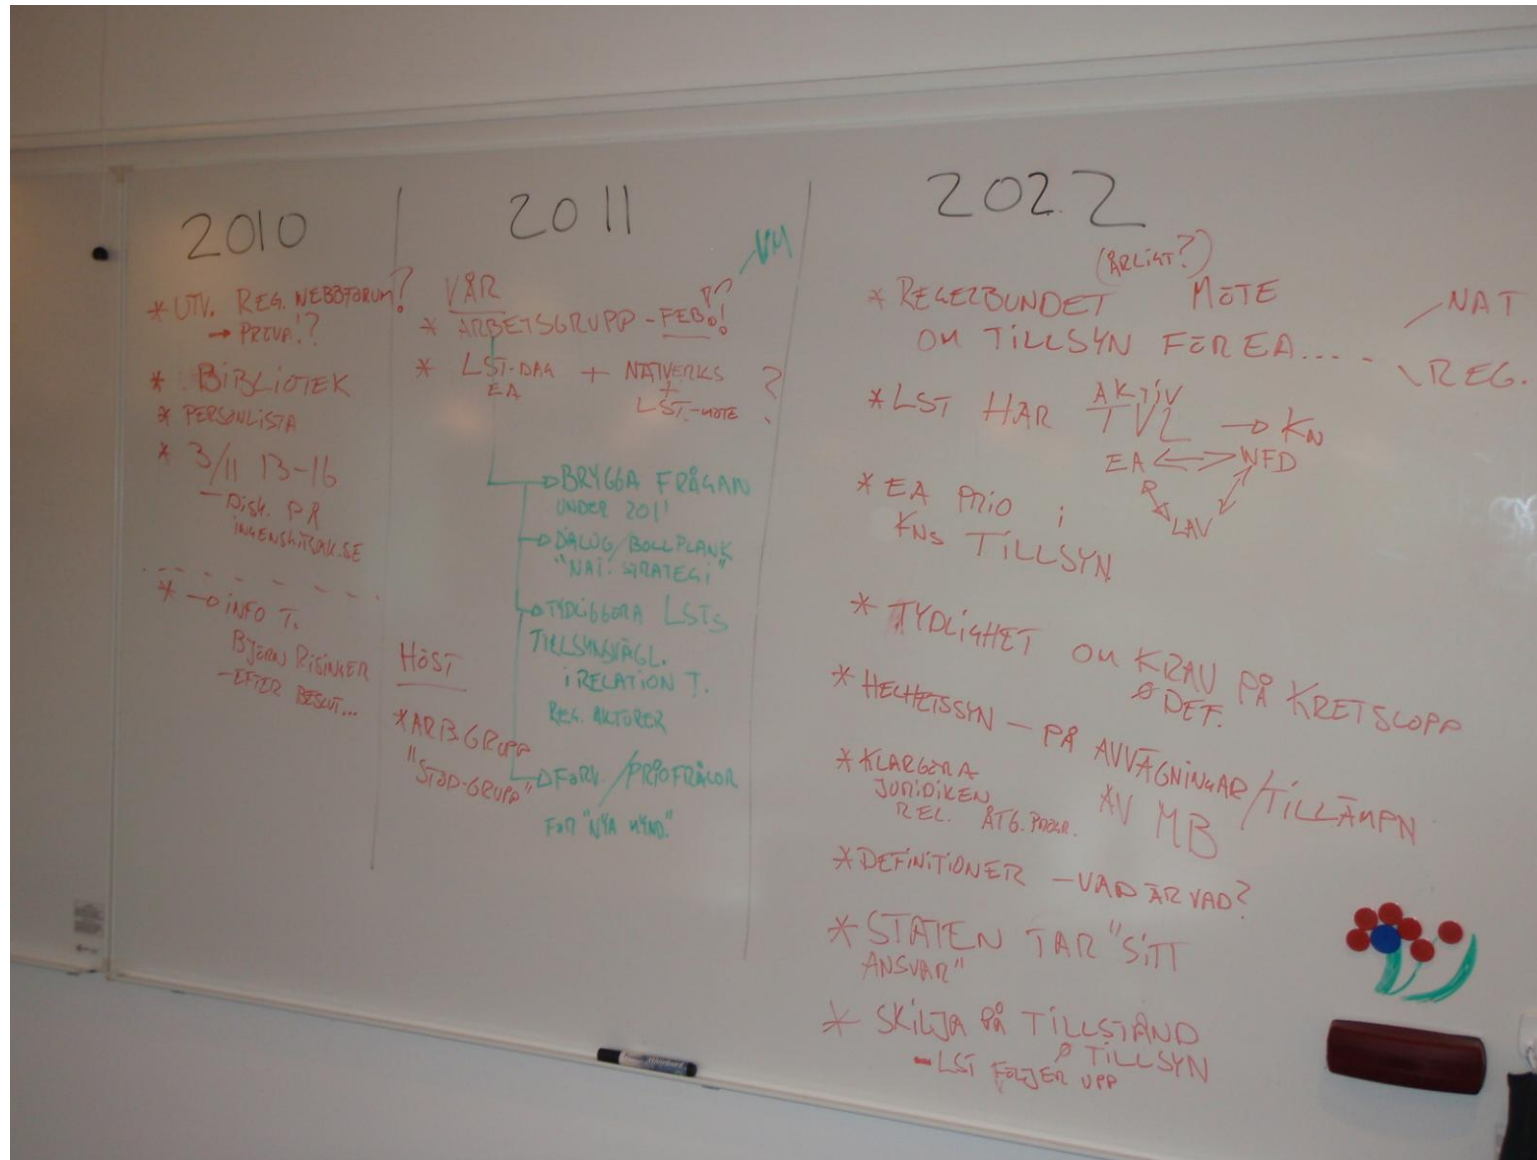 2010
* UTV. REG. WEBBFORUM?
→ PROVA!?
* BIBLIOTEK
* PERSONLISTA
* 3/11 13-16
- DISK. PÅ
* → INFO T.
BJÖRN RISINGER
- EFTER BESLUT...
2011
VM
VÅR
* ARBETSGRUPP - FEB!
* LST-DAG + NÄTVERKS ?
EA + LST-MÖTE
→ BRYGGA FRÅGAN
UNDER 2011
→ DIALOG/BOLLPLANK
"NAT. STRATEGI"
→ TYDLIGGÖRA LSTS
TILLSYNSVÄGL.
I RELATION T.
REG. AKTÖRER
→ FÖRV. /PRIOFRÅGOR
FÖR "NYA MYND."
HÖST
* ARB.GRUPP
"STÖD-GRUPP"
2022
(ÅRLIGT?)
* REGELBUNDET MÖTE
OM TILLSYN FÖR EA....
NAT
REG.
* LST HAR AKTIV
TVL → KN
EA ↔ WFD
LAV
* EA PRIO I
KNS TILLSYN
* TYDLIGHET OM KRAV PÅ KRETSLOPP
Ø DEF.
* HELHETSSYN - PÅ AVVÄGNINGAR/TILLÄMPN
AV MB
* KLARGÖRA
JURIDIKEN
REL. ÅTG. PROGR.
* DEFINITIONER - VAD ÄR VAD?
* STATEN TAR "SITT
ANSVAR"
* SKILJA PÅ TILLSTÅND
Ø TILLSYN
- LST FÖLJER UPP